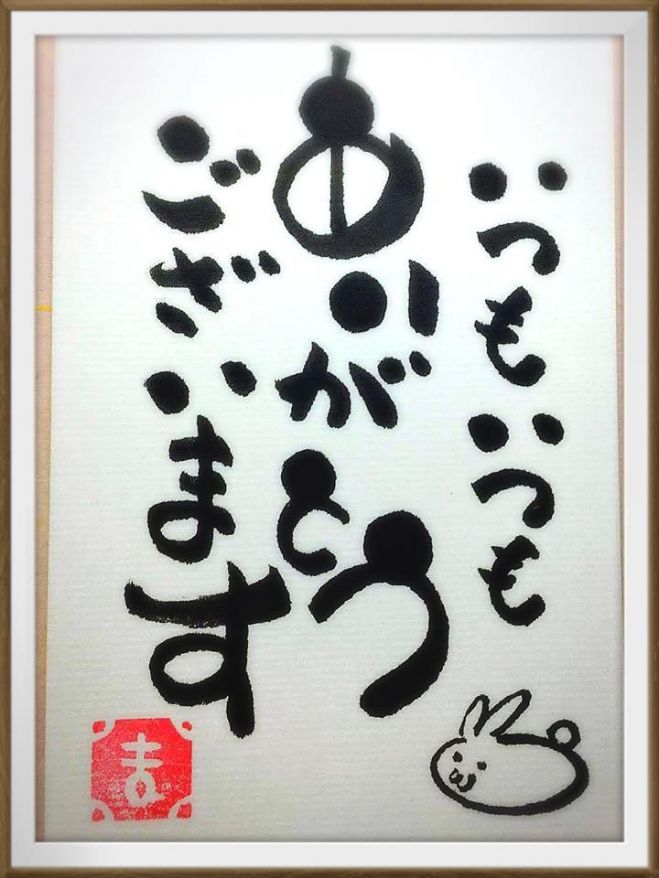 いつもいつも
ありがとう
ございます
ま